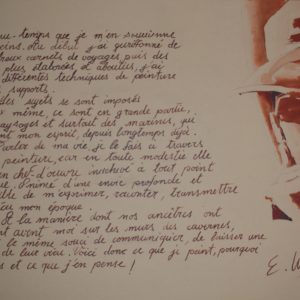 temps que je m'en souvienne
début j'ai
carnets de voyages puis des
plus élaborées et abouties, j'ai
différentes techniques de peinture
supports.
sujets se sont imposés
même, ce sont en grande partie,
paysages et surtout des marines, qui
mon esprit, depuis longtemps déjà.
Parler de ma vie, je le fais à travers
peinture, car en toute modestie elle
chef-d'œuvre inachevé à tout point
d'une envie profonde et
de m'exprimer, raconter, transmettre
mon époque.
la manière dont nos ancêtres ont
avant moi sur les murs des cavernes,
le même souci de communiquer, de laisser une
de leur vécu. Voici donc ce que je peins, pourquoi
et ce que j'en pense !
E.